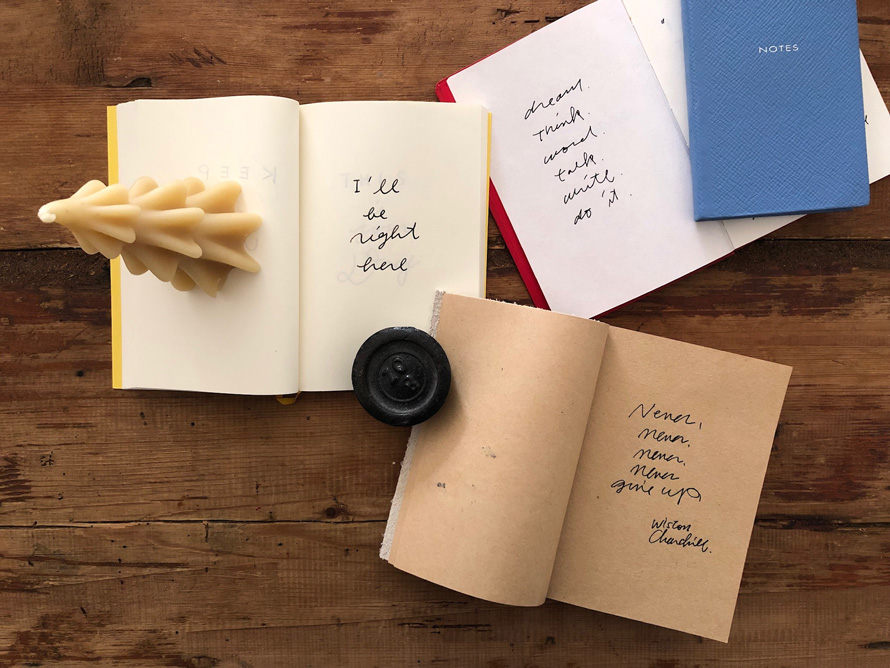 I'll
be
right
here
dream.
think.
word.
talk.
write.
do it.
NOTES
Never,
never,
never,
never
give up
Wiston
Churchill.
KEEP